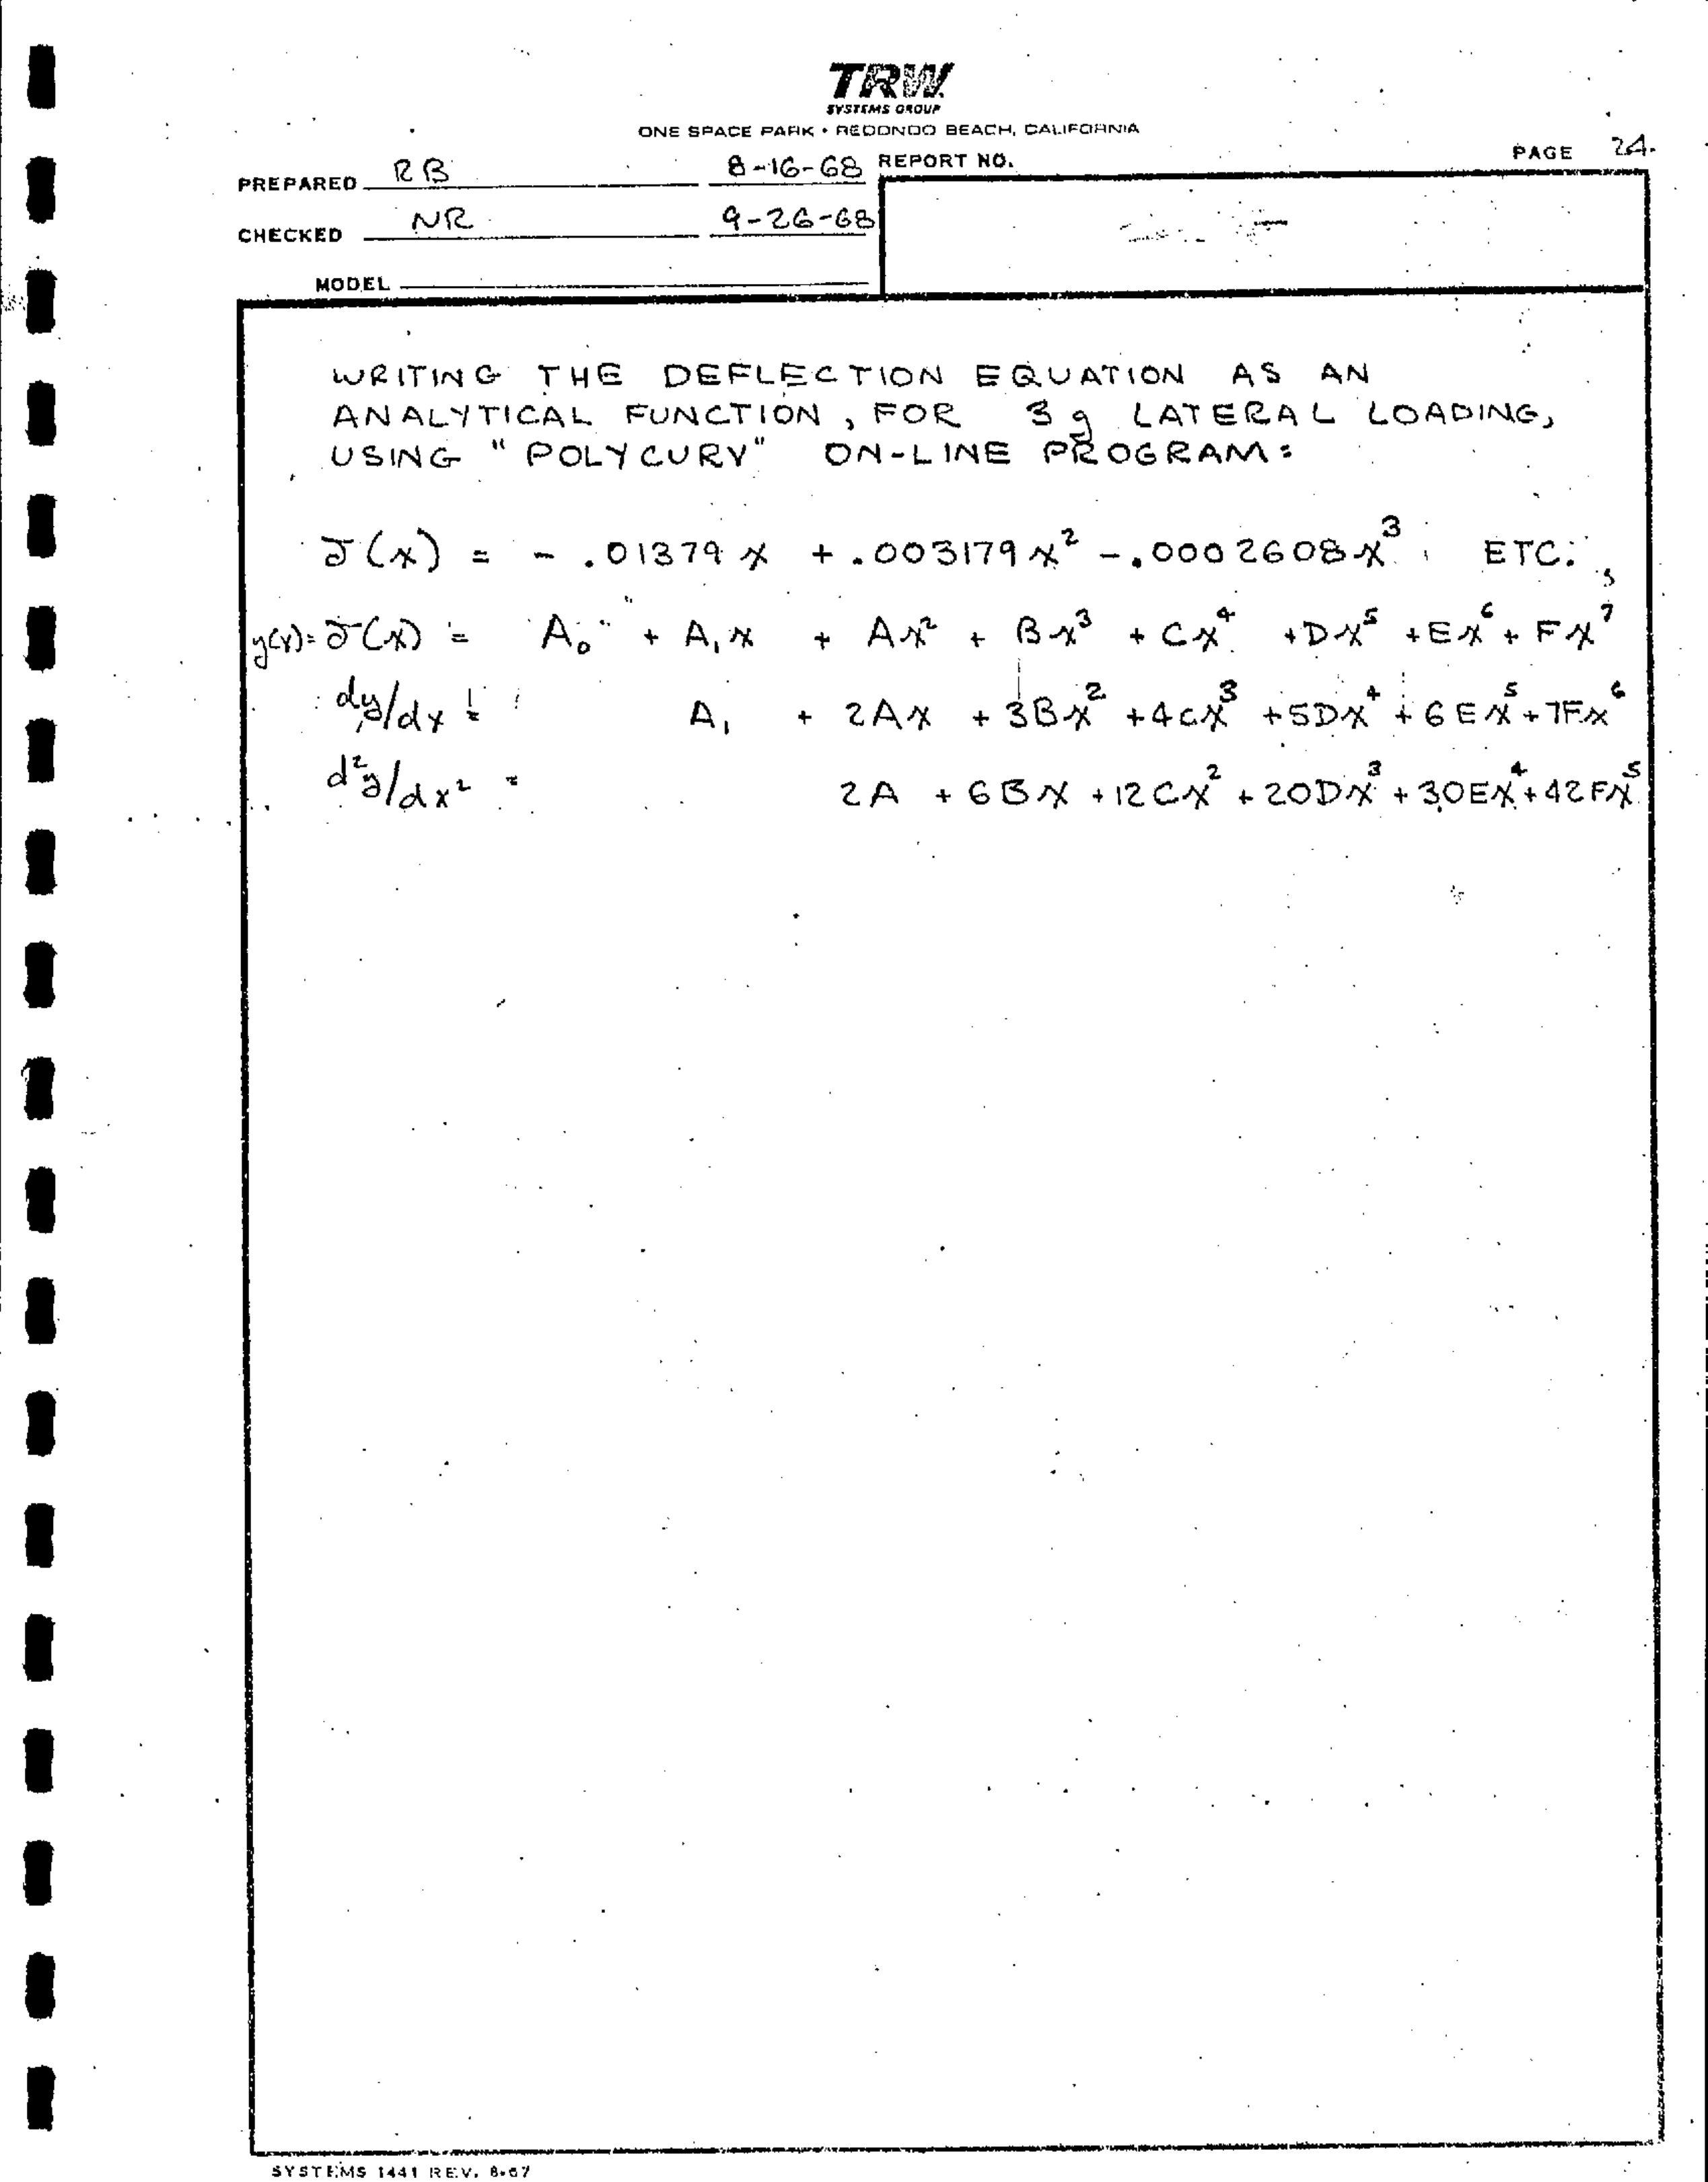 TRW
SYSTEMS GROUP
ONE SPACE PARK • REDONDO BEACH, CALIFORNIA
PREPARED RB 8-16-68 REPORT NO. PAGE 24.
CHECKED NR 9-26-68
MODEL
WRITING THE DEFLECTION EQUATION AS AN
ANALYTICAL FUNCTION, FOR 3g LATERAL LOADING,
USING "POLYCURV" ON-LINE PROGRAM:
δ(x) = - .01379x + .003179x² - .0002608x³ ETC.,
y(x) = δ(x) = A₀ + A₁x + Ax² + Bx³ + Cx⁴ + Dx⁵ + Ex⁶ + Fx⁷
dy/dx = A₁ + 2Ax + 3Bx² + 4Cx³ + 5Dx⁴ + 6Ex⁵ + 7Fx⁶
d²y/dx² = 2A + 6Bx + 12Cx² + 20Dx³ + 30Ex⁴ + 42Fx⁵
SYSTEMS 1441 REV. 8-67